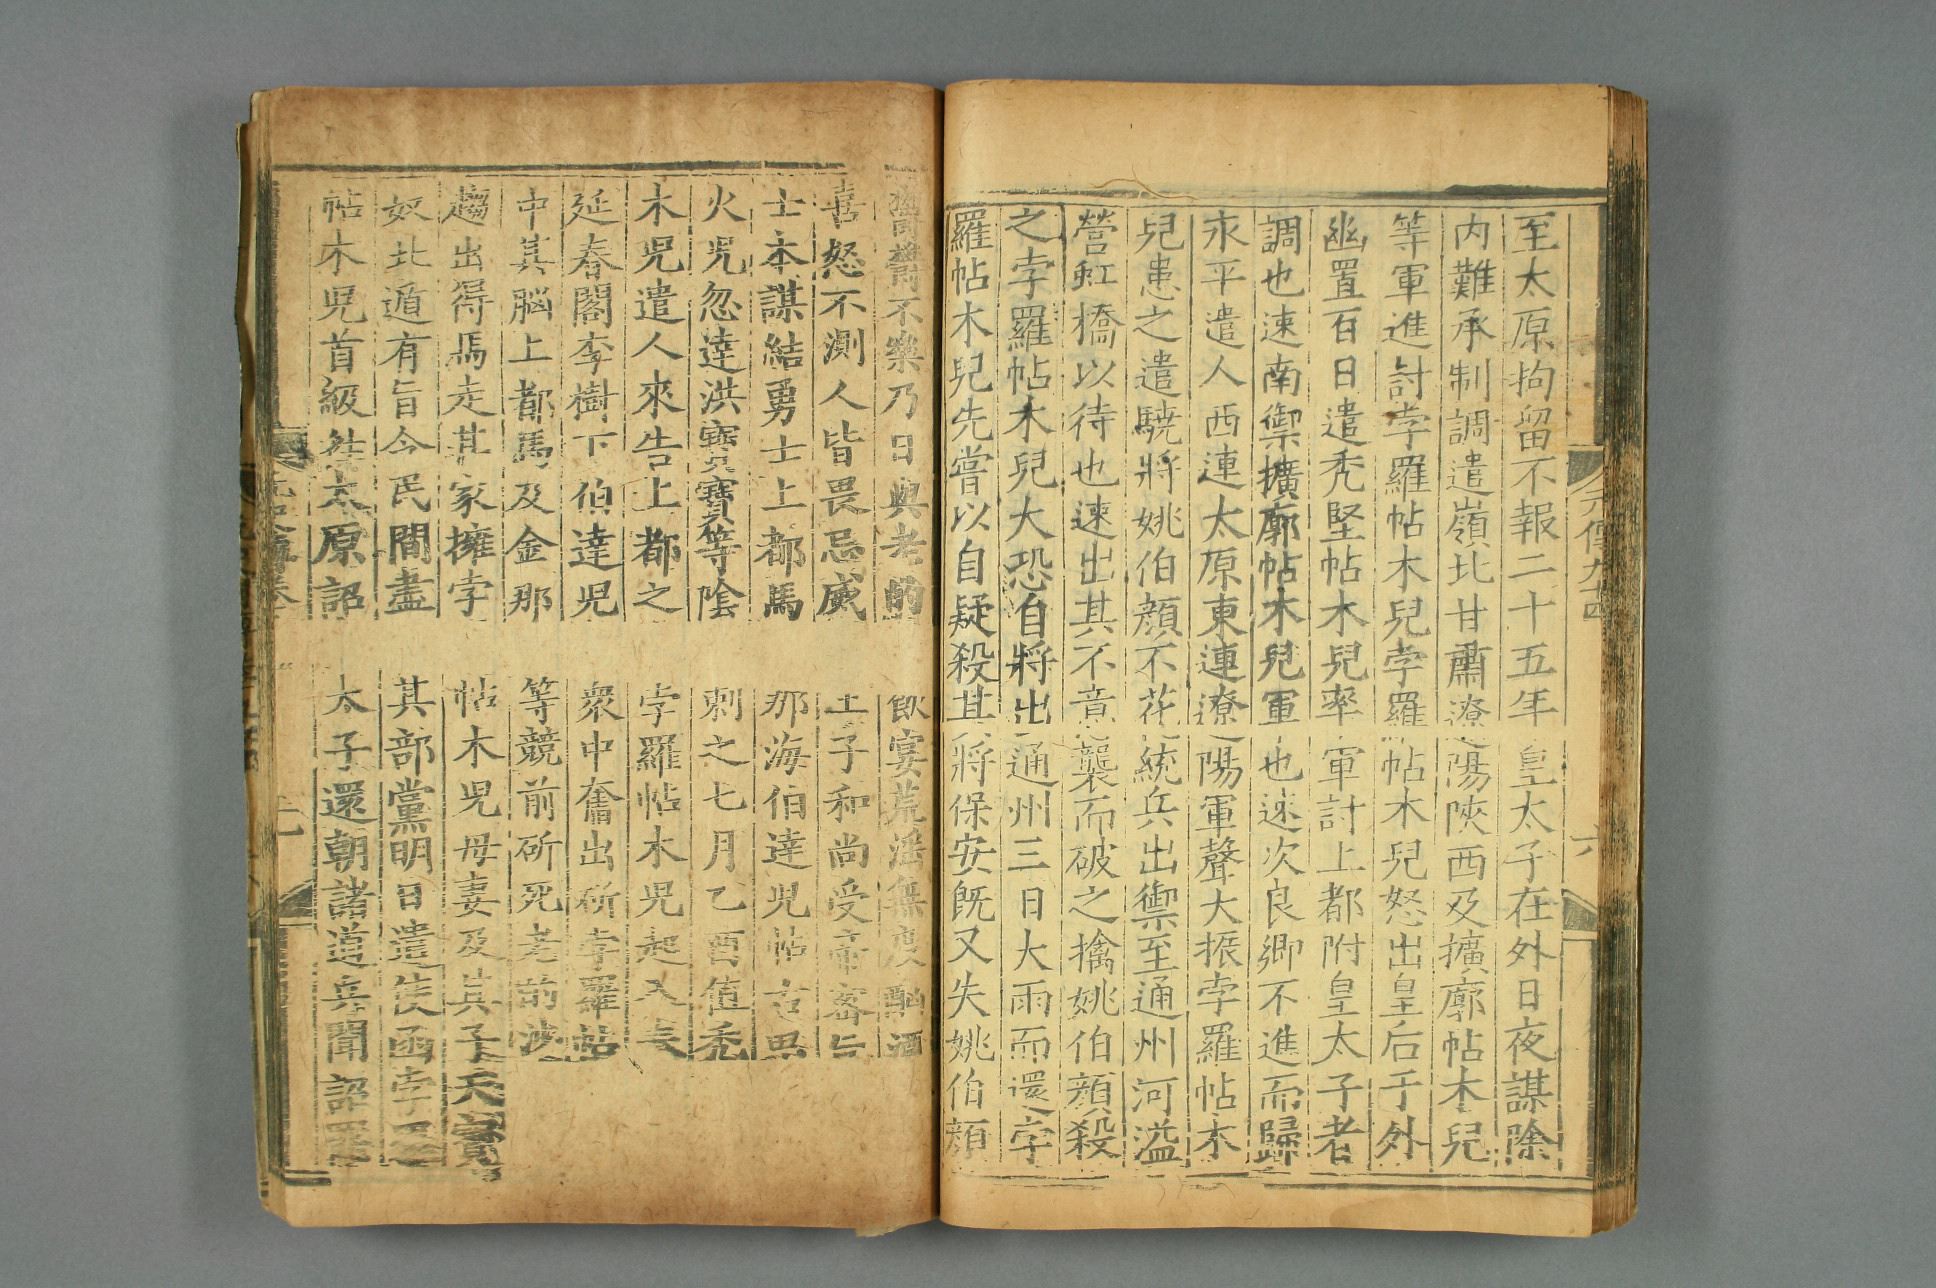 至太原拘留不報二十五年皇太子在外日夜謀除
内難承制調遣嶺北甘肅遼陽陝西及擴廓帖木兒
等軍進討孛羅帖木兒孛羅帖木兒怒出皇后于外
幽置百日遣禿堅帖木兒率軍討上都附皇太子者
調也速南禦擴廓帖木兒軍也速次良鄉不進而歸
永平遣人西連太原東連遼陽軍聲大振孛羅帖木
兒患之遣驍將姚伯顏不花統兵出禦至通州河溢
營虹橋以待也速出其不意襲而破之擒姚伯顏殺
之孛羅帖木兒大恐自將出通州三日大雨而還孛
羅帖木兒先嘗以自疑殺其將保安既又失姚伯顏
鬱鬱不樂乃日與老的飲宴荒淫無度酗酒
喜怒不測人皆畏忌威王子和尚受帝密旨
士本謀結勇士上都馬那海伯達兒帖古思
火兒忽達洪寶寶等陰刺之七月乙酉值禿
木兒遣人來告上都之孛羅帖木兒起入表
延春閣李樹下伯達兒衆中奮出斫孛羅帖
中其腦上都馬及金那等競前斫死老的沙
趨出得馬走其家擁孛帖木兒母妻及其子天寳
奴北遁有旨令民間盡其部黨明日遣使函孛
帖木兒首級往太原詔太子還朝諸道兵聞詔罷
元傳九十四
六